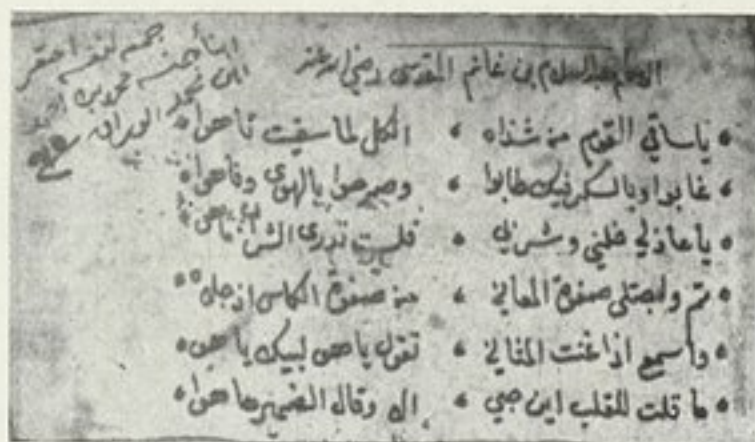 الامام عبدالسلام بن غانم المقدسي رضي الله عنه
لنفسه احقر
ابن محمد
ياساقي القوم من شذاه ، الكل لما سقيت تاهوا
غابوا وبالسكر فيك طابوا ، وصرحوا بالهوى وفاهوا
ياعاذلي خلني وشربي ، فلست تدرى الشراب ماهو
قم واجتلي صفوة المعاني ، من صفوة الكاس اذ جلاه
واسمع اذا غنت المثاني ، تقول ياهو لبيك ياهو
ما قلت للقلب اين حبي ، الا وقال الضمير ها هوا